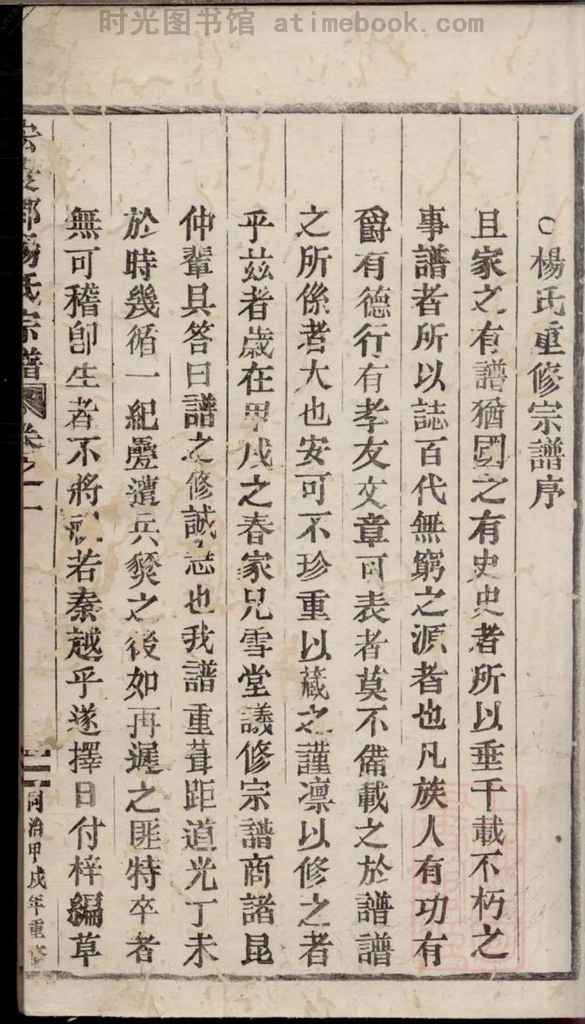 时光图书馆 atimebook.com
○楊氏重修宗譜序
且家之有譜猶國之有史史者所以垂千載不朽之
事譜者所以誌百代無窮之源者也凡族人有功有
爵有德行有孝友文章可表者莫不備載之於譜譜
之所係者大也安可不珍重以藏之謹凛以修之者
乎兹者歲在甲戌之春家兄雪堂議修宗譜商諸昆
仲輩具答曰譜之修誠 也我譜重葺距道光丁未
於時幾循一紀疊遭兵燹之後如再遲之匪特卒者
無可稽卽生者不將 若秦越乎遂擇日付梓編草
楊氏宗譜 卷之一
一
同治甲戌年重